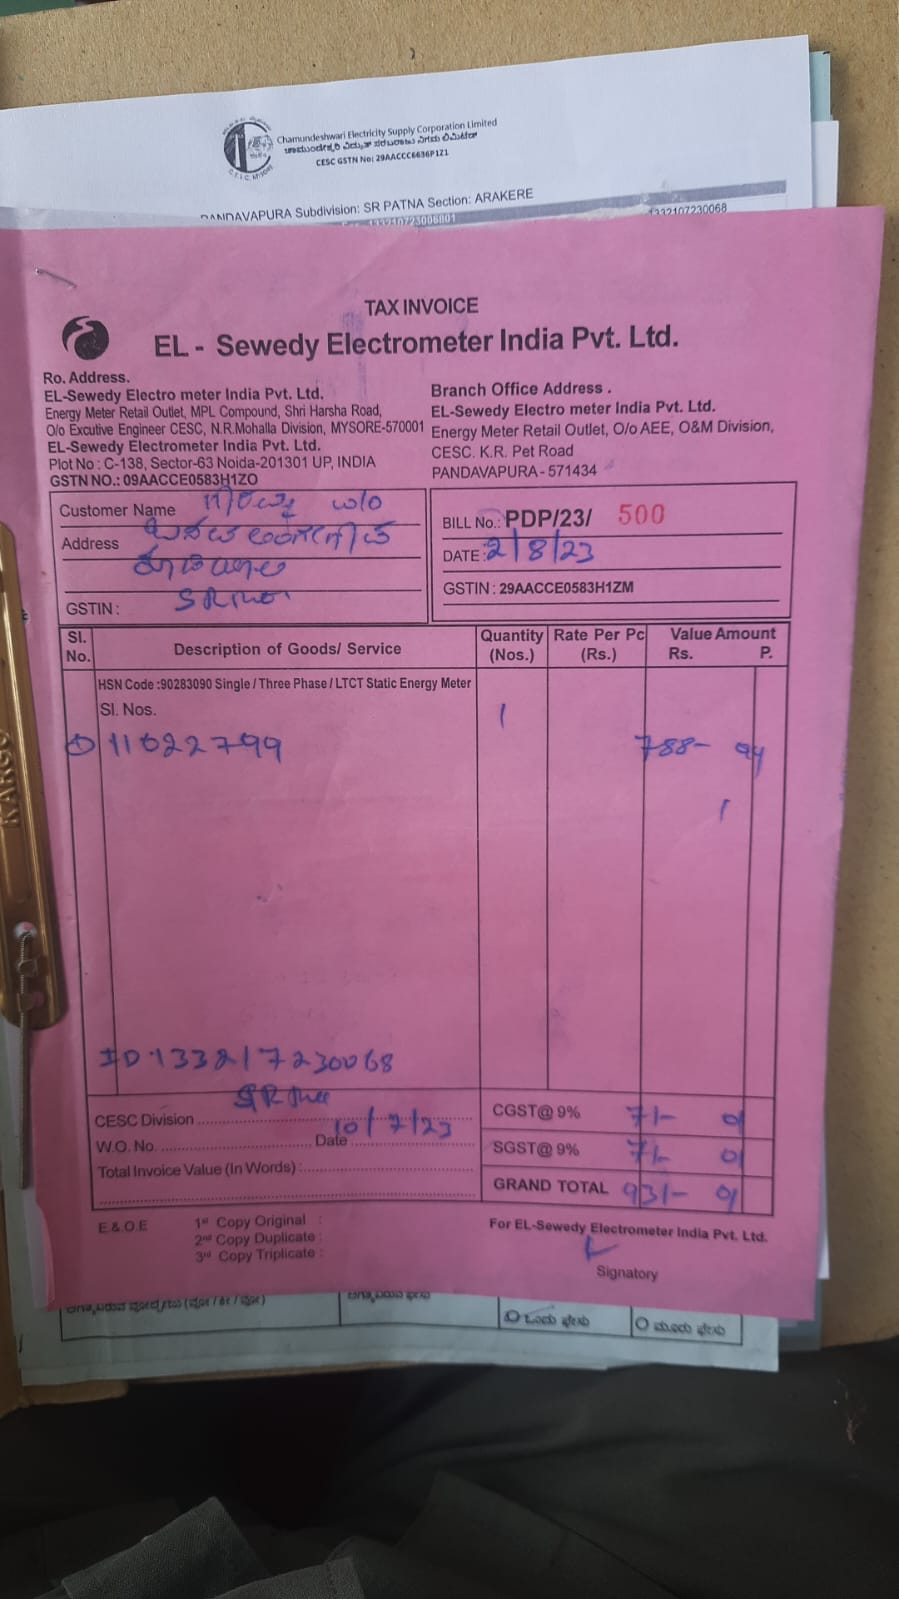 Chamundeshwari Electricity Supply Corporation Limited
ಚಾಮುಂಡೇಶ್ವರಿ ವಿದ್ಯುತ್ ಸರಬರಾಜು ನಿಗಮ ನಿಯಮಿತ
CESC GSTN No: 29AACCC6636P1Z1
PANDAVAPURA Subdivision: SR PATNA Section: ARAKERE
1332107230068
TAX INVOICE
EL - Sewedy Electrometer India Pvt. Ltd.
Ro. Address.
EL-Sewedy Electro meter India Pvt. Ltd.
Energy Meter Retail Outlet, MPL Compound, Shri Harsha Road,
O/o Excutive Engineer CESC, N.R.Mohalla Division, MYSORE-570001
EL-Sewedy Electrometer India Pvt. Ltd.
Plot No : C-138, Sector-63 Noida-201301 UP, INDIA
GSTN NO.: 09AACCE0583H1ZO
Branch Office Address .
EL-Sewedy Electro meter India Pvt. Ltd.
Energy Meter Retail Outlet, O/o AEE, O&M Division,
CESC. K.R. Pet Road
PANDAVAPURA - 571434
Customer Name w/o
Address
GSTIN :
BILL No.: PDP/23/ 500
DATE : 2/8/23
GSTIN : 29AACCE0583H1ZM
Sl. No. Description of Goods/ Service Quantity (Nos.) Rate Per Pc (Rs.) Value Amount Rs. P.
HSN Code :90283090 Single / Three Phase / LTCT Static Energy Meter
Sl. Nos. 1
① 11022799 788- 94
ID 133217230068
CESC Division
W.O. No. Date 10/7/23
Total Invoice Value (In Words) :
CGST@ 9% 71- 01
SGST@ 9% 71- 01
GRAND TOTAL 931- 01
E.& O.E
1st Copy Original :
2nd Copy Duplicate :
3rd Copy Triplicate :
For EL-Sewedy Electrometer India Pvt. Ltd.
Signatory
ಒಂದು ಫೇಸು
ಮೂರು ಫೇಸು
KARGO